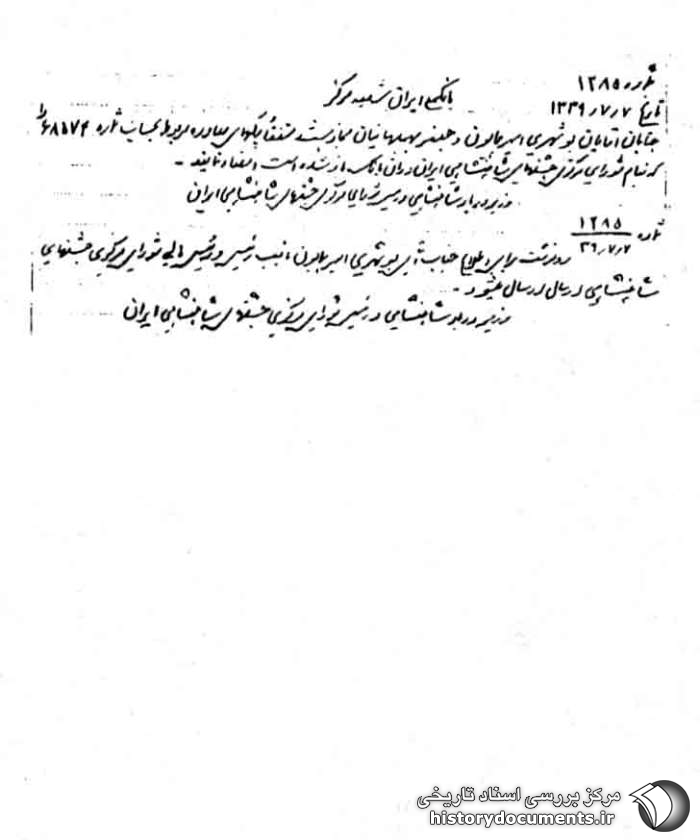 شماره ۱۲۸۵
تاریخ ۱۳۳۹/۷/۷
بانک ملی ایران شعبه مرکز
جنابان آقایان بوشهری امیر همایون و جعفر بهبهانیان مجاز میباشند متفقاً چکهای صادره مربوط بحساب شماره ۶۸۵۷۴
که بنام شورای مرکزی جشنهای شاهنشاهی ایران در آن بانک باز شده است امضاء نمایند -
وزیر دربار شاهنشاهی و رئیس شورای مرکزی جشنهای شاهنشاهی ایران
شماره ۱۲۸۵
۳۹/۷/۷
رونوشت برای اطلاع جناب آقای بوشهری امیر همایون نایب رئیس و رئیس مالی شورای مرکزی جشنهای
شاهنشاهی ارسال میشود -
وزیر دربار شاهنشاهی و رئیس شورای مرکزی جشنهای شاهنشاهی ایران
مرکز بررسی اسناد تاریخی
historydocuments.ir